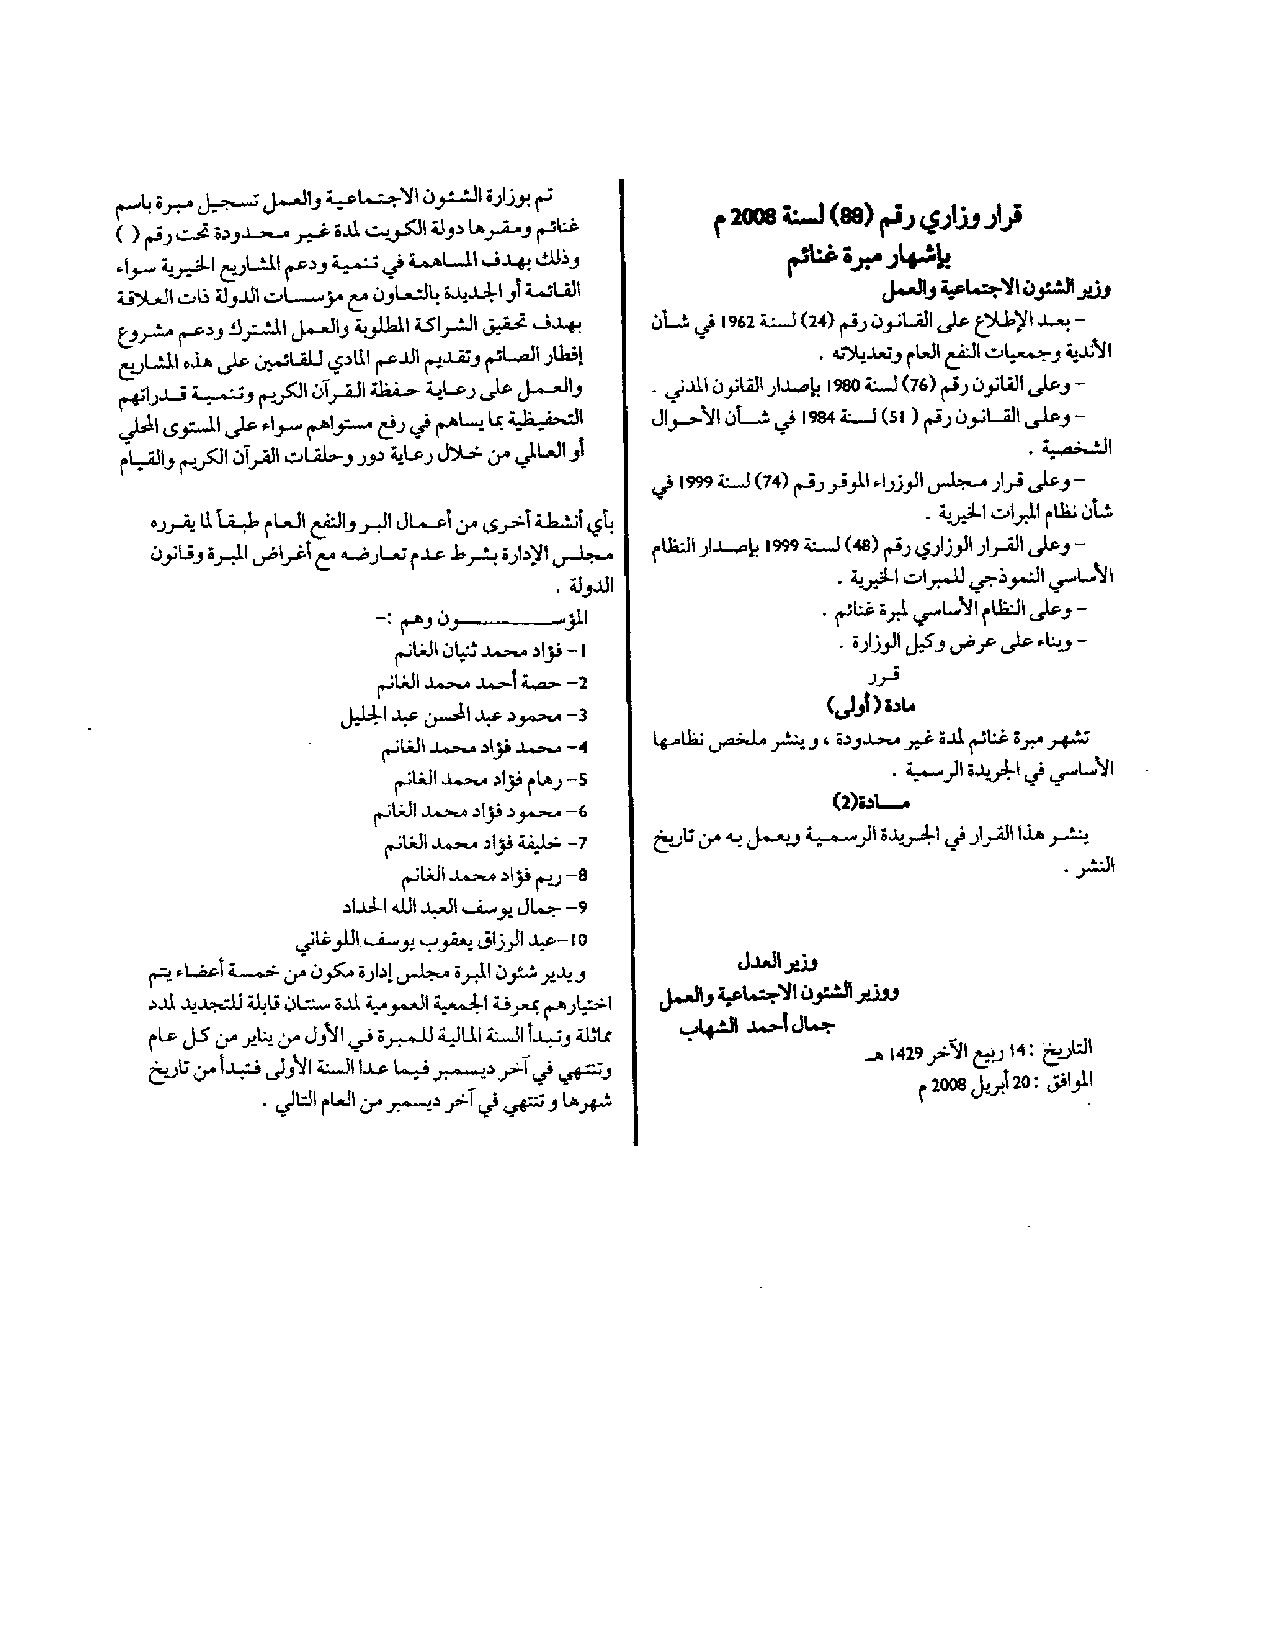 قرار وزاري رقم (88) لسنة 2008 م
بإشهار مبرة غنائم
وزير الشئون الاجتماعية والعمل
- بعد الإطلاع على القانون رقم (24) لسنة 1962 في شأن
الأندية وجمعيات النفع العام وتعديلاته .
- وعلى القانون رقم (76) لسنة 1980 بإصدار القانون المدني .
- وعلى القانون رقم ( 51) لسنة 1984 في شأن الأحوال
الشخصية .
- وعلى قرار مجلس الوزراء الموقر رقم (74) لسنة 1999 في
شأن نظام المبرات الخيرية .
- وعلى القرار الوزاري رقم (48) لسنة 1999 بإصدار النظام
الأساسي النموذجي للمبرات الخيرية .
- وعلى النظام الأساسي لمبرة غنائم .
- وبناء على عرض وكيل الوزارة .
قرر
مادة (أولى)
تشهر مبرة غنائم لمدة غير محدودة ، و ينشر ملخص نظامها
الأساسي في الجريدة الرسمية .
مــادة(2)
ينشر هذا القرار في الجريدة الرسمية ويعمل به من تاريخ
النشر .
وزير العدل
ووزير الشئون الاجتماعية والعمل
جمال أحمد الشهاب
التاريخ : 14 ربيع الآخر 1429 هـ
الموافق : 20 أبريل 2008 م
تم بوزارة الشئون الاجتماعية والعمل تسجيل مبرة باسم
غنائم ومقرها دولة الكويت لمدة غير محدودة تحت رقم ( )
وذلك بهدف المساهمة في تنمية ودعم المشاريع الخيرية سواء
القائمة أو الجديدة بالتعاون مع مؤسسات الدولة ذات العلاقة
بهدف تحقيق الشراكة المطلوبة والعمل المشترك ودعم مشروع
إفطار الصائم وتقديم الدعم المادي للقائمين على هذه المشاريع
والعمل على رعاية حفظة القرآن الكريم وتنمية قدراتهم
التحفيظية بما يساهم في رفع مستواهم سواء على المستوى المحلي
أو العالمي من خلال رعاية دور وحلقات القرآن الكريم والقيام
بأي أنشطة أخرى من أعمال البر والنفع العام طبقاً لما يقرره
مجلس الإدارة بشرط عدم تعارضه مع أغراض المبرة وقانون
الدولة .
المؤســــــــــــون وهم :-
1- فؤاد محمد ثنيان الغانم
2- حصة أحمد محمد الغانم
3- محمود عبد المحسن عبد الجليل
4- محمد فؤاد محمد الغانم
5- رهام فؤاد محمد الغانم
6- محمود فؤاد محمد الغانم
7- خليفة فؤاد محمد الغانم
8- ريم فؤاد محمد الغانم
9- جمال يوسف العبد الله الحداد
10-عبد الرزاق يعقوب يوسف اللوغاني
و يدير شئون المبرة مجلس إدارة مكون من خمسة أعضاء يتم
اختيارهم بمعرفة الجمعية العمومية لمدة سنتان قابلة للتجديد لمدد
مماثلة وتبدأ السنة المالية للمبرة في الأول من يناير من كل عام
وتنتهي في آخر ديسمبر فيما عدا السنة الأولى فتبدأ من تاريخ
شهرها و تنتهي في آخر ديسمبر من العام التالي .